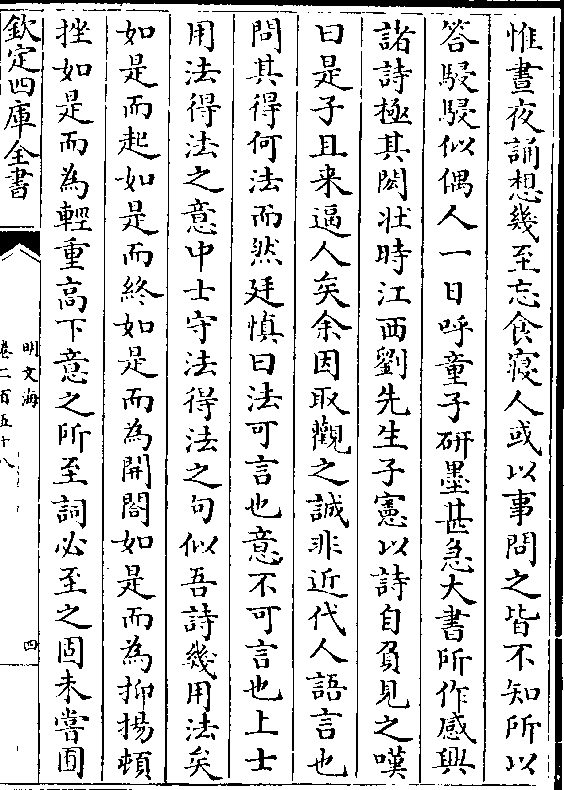 惟晝夜誦想幾至忘食寢人或以事問之皆不知所以
答駸駸似偶人一日呼童子研墨甚急大書所作感興
諸詩極其閎壯時江西劉先生子憲以詩自負見之嘆
曰是子且来逼人矣余因取觀之誠非近代人語言也
問其得何法而然廷慎曰法可言也意不可言也上士
用法得法之意中士守法得法之句似吾詩幾用法矣
如是而起如是而終如是而為開閤如是而為抑揚頓
挫如是而為輕重高下意之所至詞必至之固未嘗囿
欽定四庫全書
明文海
卷二百五十八
四